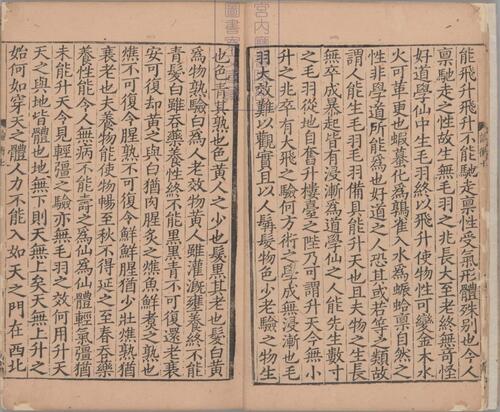 能飛升飛升不能馳走稟性受氣形體殊別也今人
稟馳走之性故生無毛羽之兆長大至老終無奇怪
好道學仙中生毛羽終以飛升使物性可變金木水
火可革更也蝦蟇化為鶉雀入水為蜄蛤稟自然之
性非學道所能為也好道之人恐其或若等之類故
謂人能生毛羽毛羽備具能升天也且夫物之生長
無卒成暴起皆有浸漸為道學仙之人能先生數寸
之毛羽從地自奮升樓臺之陛乃可謂升天今無小
升之兆卒有大飛之驗何方術之學成無浸漸也毛
羽大效難以觀實且以人髯髮物色少老驗之物生
也色青其熟也色黃人之少也髮黑其老也髮白黃
為物熟驗白為人老效物黃人雖灌漑壅養終不能
青髮白雖吞藥養性終不能黑黑青不可復還老衰
安可復却黃之與白猶肉腥炙之燋魚鮮煑之熟也
燋不可復令腥熟不可復令鮮鮮腥猶少壯燋熟猶
衰老也夫養物能使物暢至秋不得延之至春吞藥
養性能令人無病不能壽之為仙為仙體輕氣彊猶
未能升天令見輕彊之驗亦無毛羽之效何用升天
天之與地皆體也地無下則天無上矣天無上升之
始何如穿天之體人力不能入如天之門在西北
宮内
圖書寮